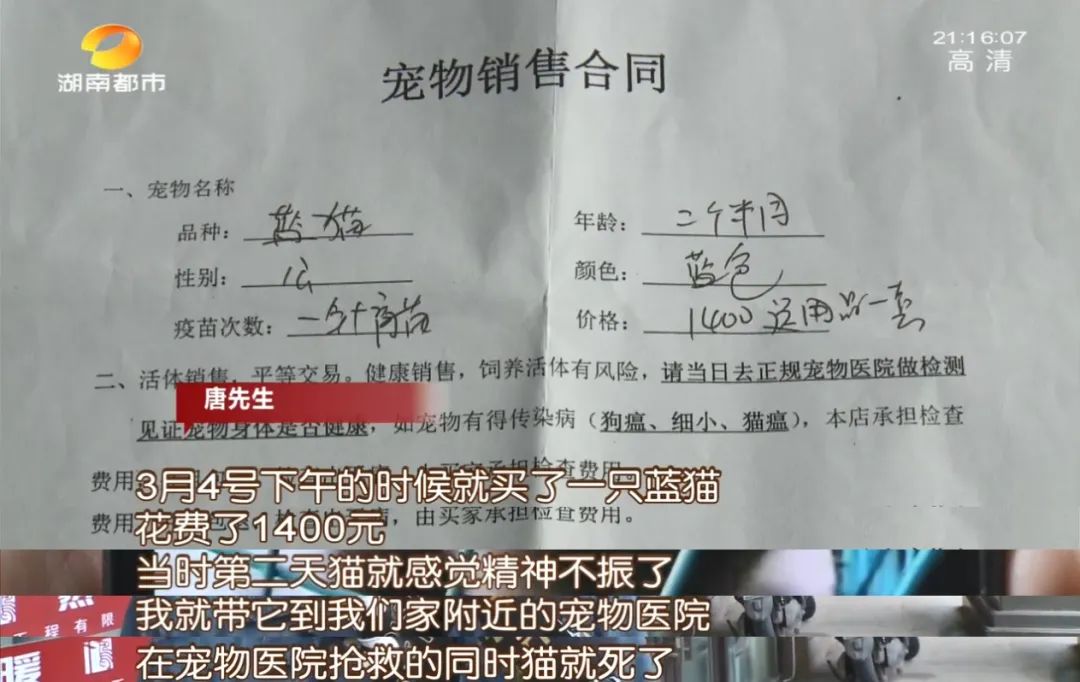 湖南都市
21:16:07
高清
宠物销售合同
一、宠物名称
品种：蓝猫
年龄：二个半月
性别：公
颜色：蓝色
疫苗次数：一针
价格：1400 送用品一套
二、活体销售，平等交易。健康销售，饲养活体有风险，请当日去正规宠物医院做检测
唐先生
见证宠物身体是否健康，如宠物有得传染病（狗瘟、细小、猫瘟），本店承担检查
费用
3月4号下午的时候就买了一只蓝猫
费用
病，由买家承担检查费用。
花费了1400元
当时第二天猫就感觉精神不振了
我就带它到我们家附近的宠物医院
工程有限
暖
在宠物医院抢救的同时猫就死了